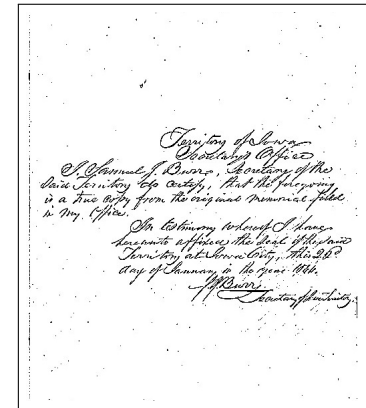 Territory of Iowa
Secretary's Office
I, Samuel J. Burr, Secretary of the
said Territory do certify, that the foregoing
is a true copy from the original memorial filed
in my Office.
In testimony whereof I have
hereunto affixed the Seal of the said
Territory at Iowa City, this
day of January in the year 1844.
S.J. Burr
Secretary of the Territory.